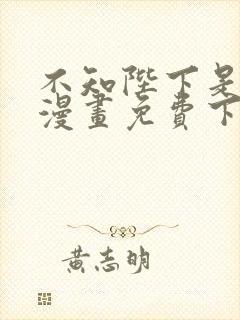 不知陛下是
漫畫免費下
黃志明